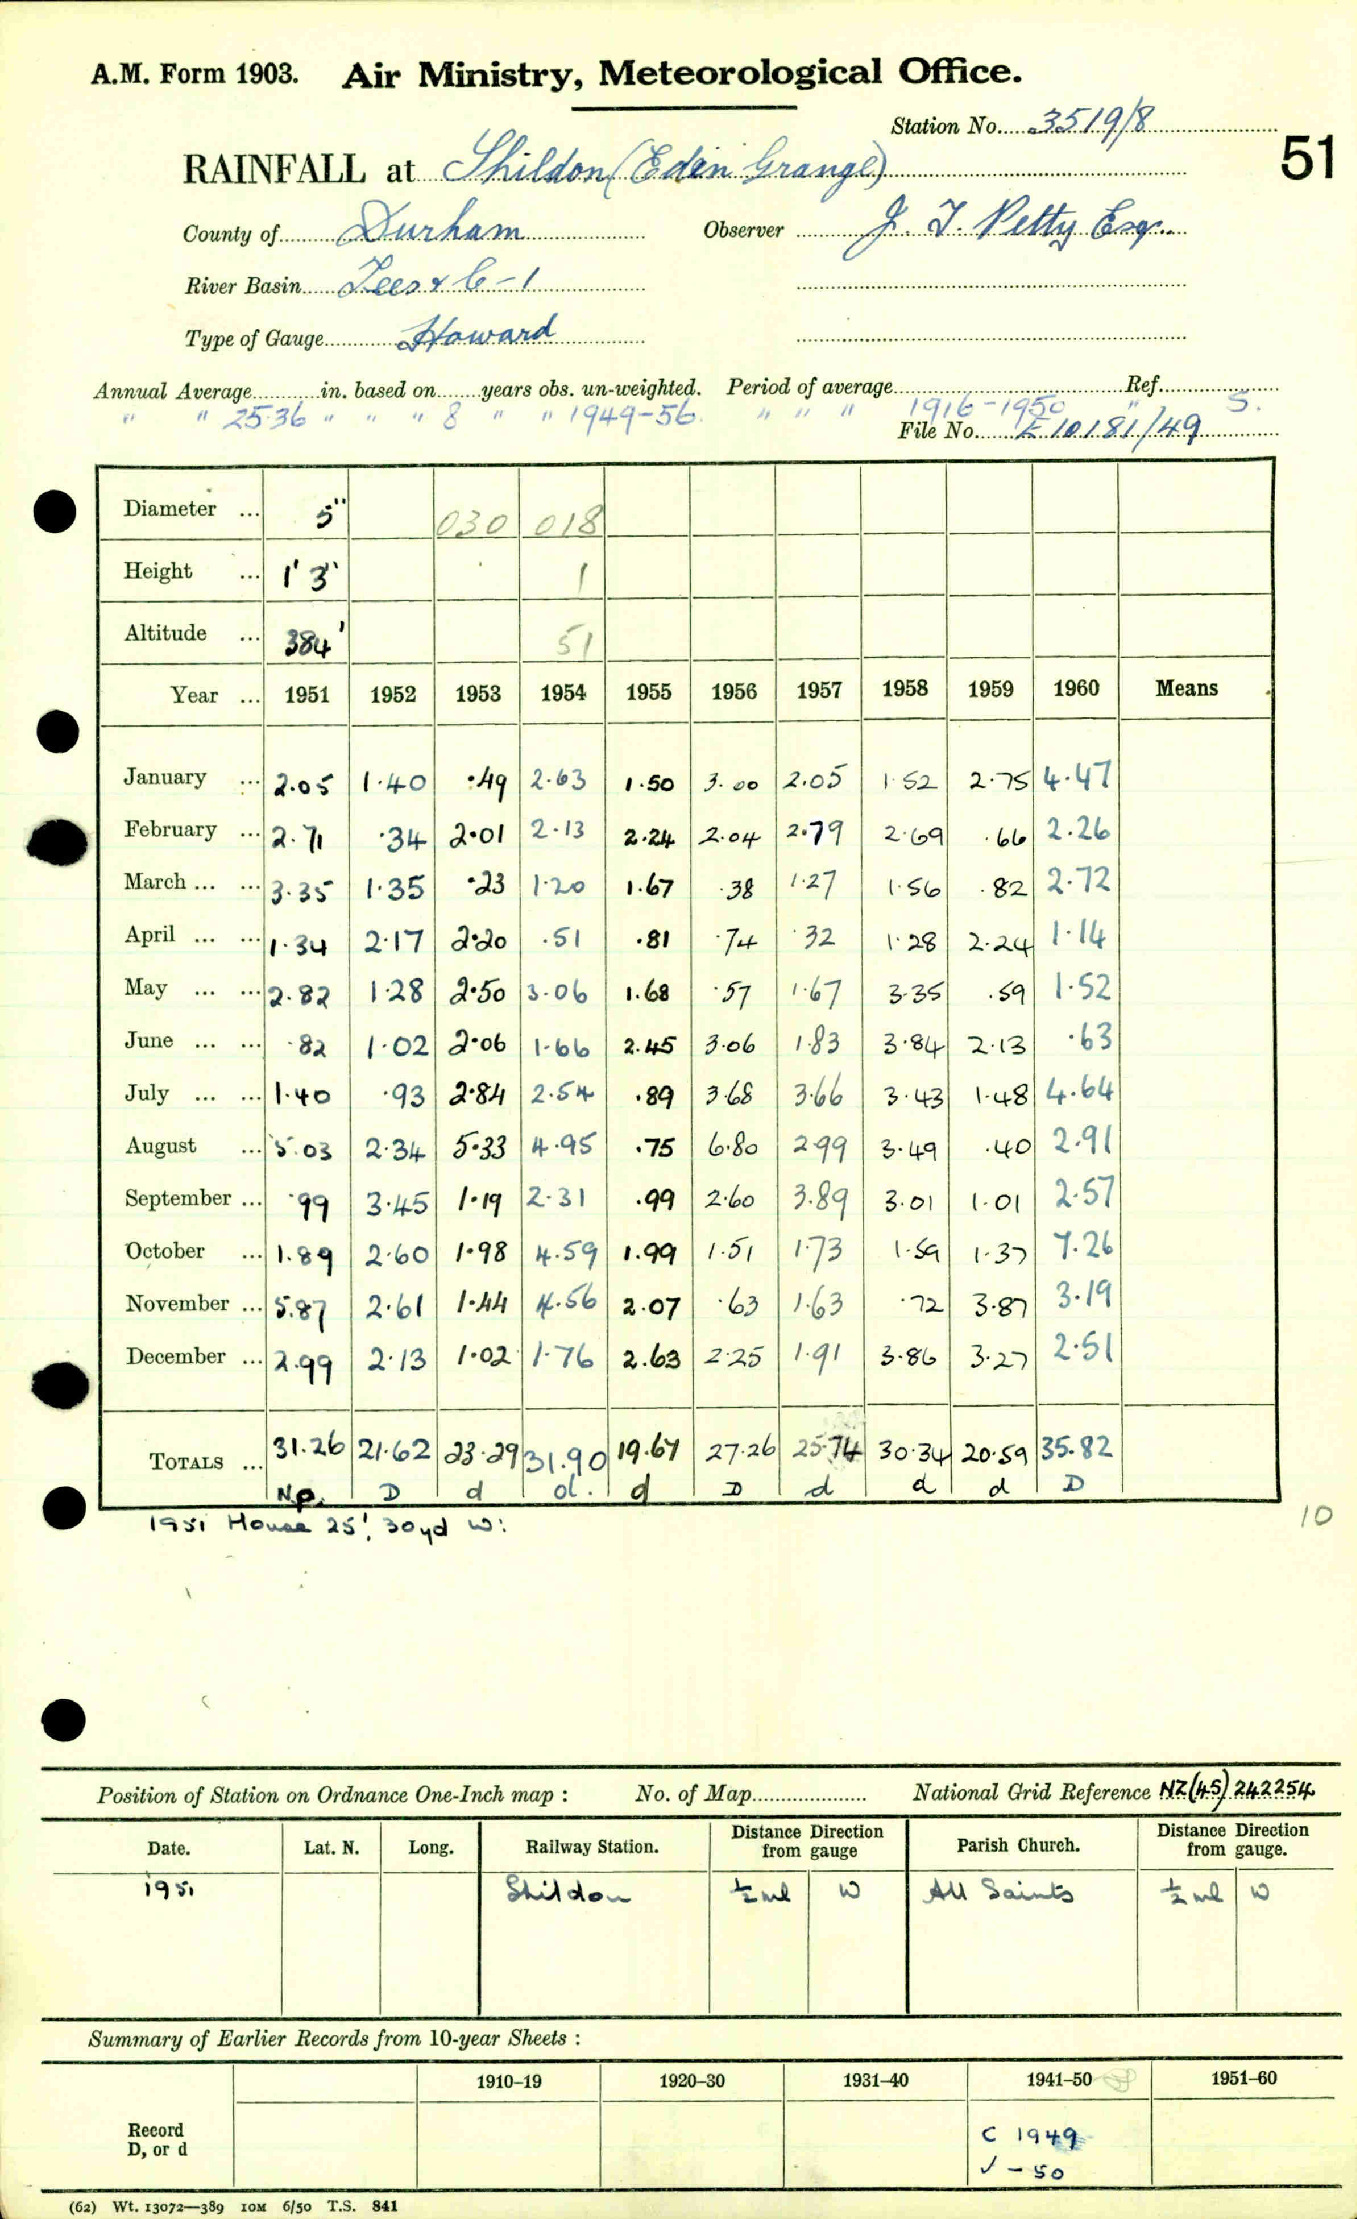 A.M. Form 1903. Air Ministry, Meteorological Office.
Station No. 3519/8
51
RAINFALL at Shildon (Eden Grange)
County of Durham Observer J. T. Petty Esq.
River Basin Tees & C-1
Type of Gauge Howard
Annual Average in. based on years obs. un-weighted. Period of average Ref.
" " 25.36 " " " 8 " " 1949-56. " " " 1916-1950 " 5.
File No. E 10181/49
Diameter ... 5" 030 018
Height ... 1' 3" 1
Altitude ... 384' 51
Year ... 1951 1952 1953 1954 1955 1956 1957 1958 1959 1960 Means
January ... 2.05 1.40 .49 2.63 1.50 3.00 2.05 1.52 2.75 4.47
February ... 2.71 .34 2.01 2.13 2.24 2.04 2.79 2.69 .66 2.26
March ... ... 3.35 1.35 .23 1.20 1.67 .38 1.27 1.56 .82 2.72
April ... ... 1.34 2.17 2.20 .51 .81 .74 .32 1.28 2.24 1.14
May ... ... 2.82 1.28 2.50 3.06 1.68 .57 1.67 3.35 .59 1.52
June ... ... .82 1.02 2.06 1.66 2.45 3.06 1.83 3.84 2.13 .63
July ... ... 1.40 .93 2.84 2.54 .89 3.68 3.66 3.43 1.48 4.64
August ... 5.03 2.34 5.33 4.95 .75 6.80 2.99 3.49 .40 2.91
September ... .99 3.45 1.19 2.31 .99 2.60 3.89 3.01 1.01 2.57
October ... 1.89 2.60 1.98 4.59 1.99 1.51 1.73 1.59 1.37 7.26
November ... 5.87 2.61 1.44 4.56 2.07 .63 1.63 .72 3.87 3.19
December ... 2.99 2.13 1.02 1.76 2.63 2.25 1.91 3.86 3.27 2.51
TOTALS ... 31.26 21.62 23.29 31.90 19.67 27.26 25.74 30.34 20.59 35.82
Np. D d d. d D d d d D
1951 House 25', 30yd W:
10
Position of Station on Ordnance One-Inch map : No. of Map National Grid Reference NZ(45) 242254
Date. Lat. N. Long. Railway Station. Distance Direction from gauge Parish Church. Distance Direction from gauge.
1951 Shildon ½ ml W All Saints ½ ml W
Summary of Earlier Records from 10-year Sheets :
1910–19 1920–30 1931–40 1941–50 1951–60
Record
D, or d
C 1949
✓ - 50
(62) Wt. 13072—389 10M 6/50 T.S. 841